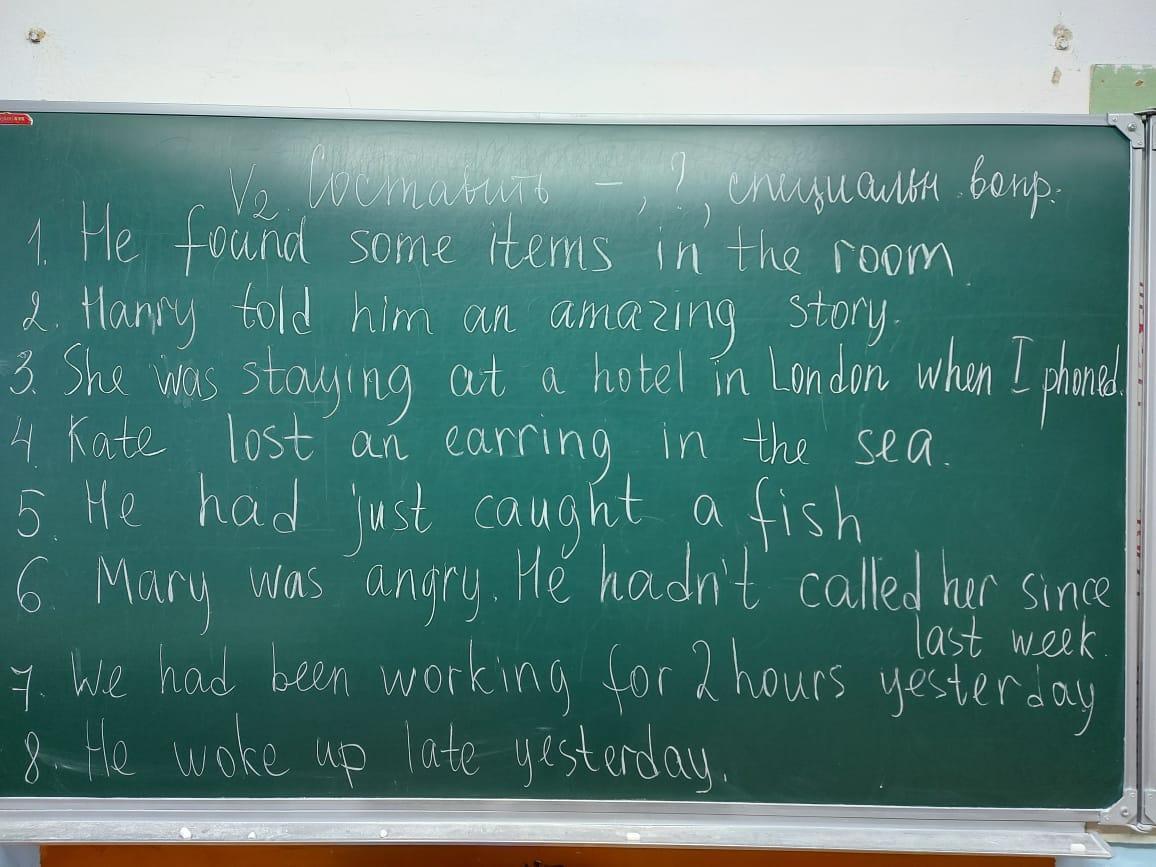 V2 Составить – , ? , специальн. вопр.
1. He found some items in the room
2. Harry told him an amazing story.
3. She was staying at a hotel in London when I phoned.
4 Kate lost an earring in the sea.
5. He had just caught a fish
6. Mary was angry. He hadn't called her since
last week.
7. We had been working for 2 hours yesterday
8. He woke up late yesterday.